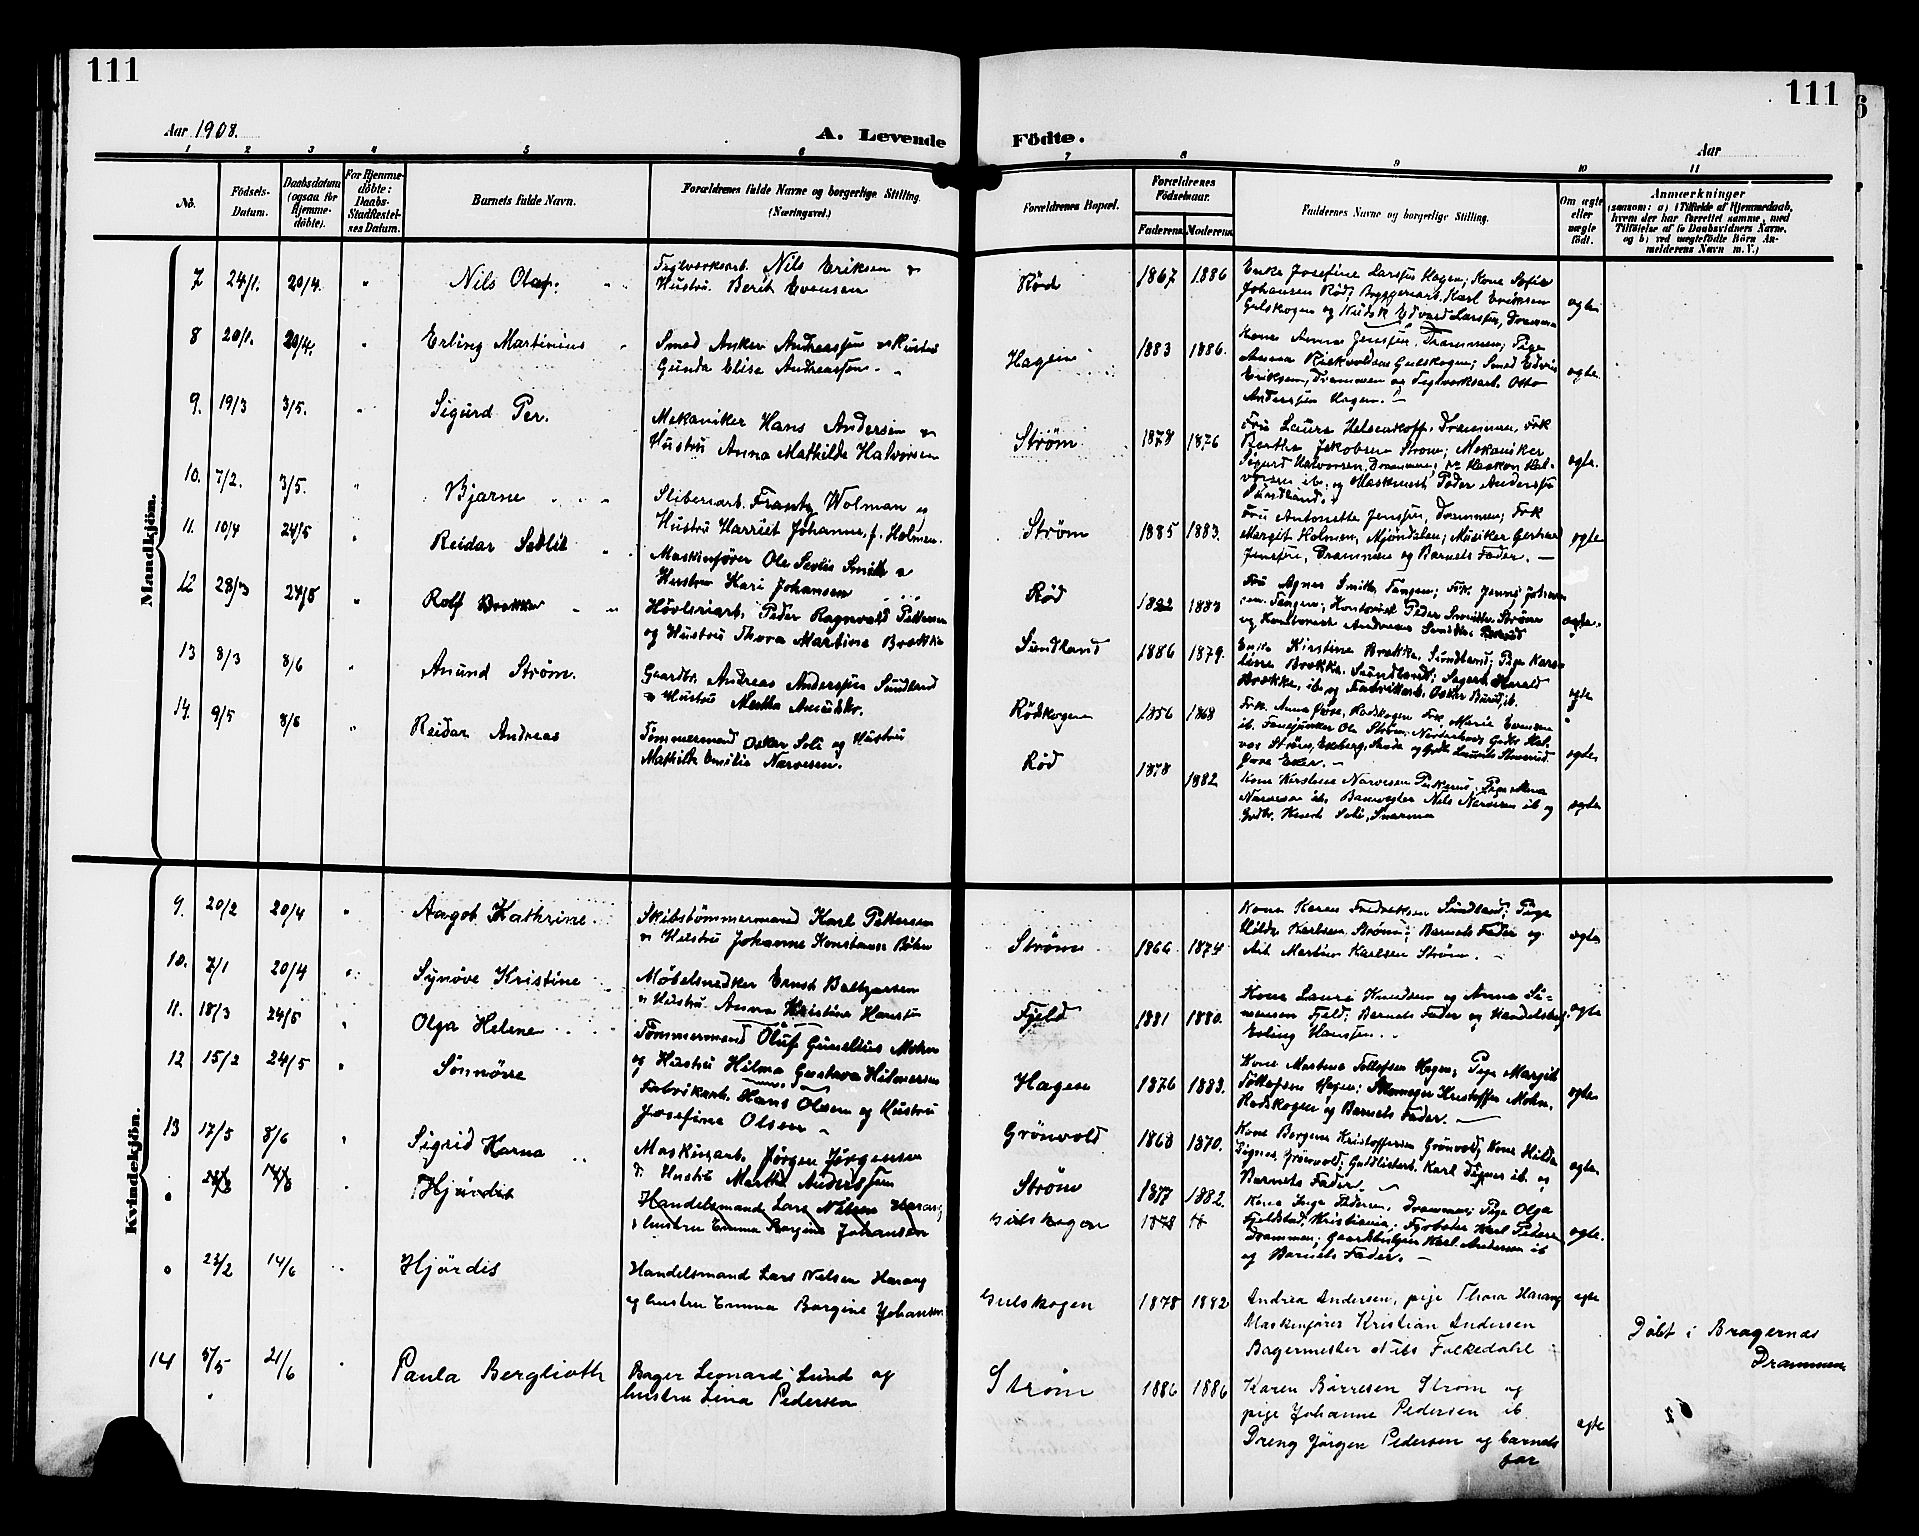 111
111
Aar 1908.
A. Levende
Födte.
Aar
1 2 3 4 5 6 7 8 9 10 11
No.
Födsels-
Datum.
Daabsdatum
(ogsaa for
Hjemme-
döbte).
For Hjemme-
döbte:
Daabs-
Stadfæstel-
ses Datum.
Barnets fulde Navn.
Forældrenes fulde Navne og borgerlige Stilling.
(Næringsvei.)
Forældrenes Bopæl.
Forældrenes
Födselsaar.
Faderens
Moderens
Faddernes Navne og borgerlige Stilling.
Om ægte
eller
uægte
födt.
Anmærkninger
(saasom: a) i Tilfælde af Hjemmedaab,
hvem der har forrettet samme, med
Tilföielse af to Daabsvidners Navne,
og b) ved uægtefödte Börn An-
melderens Navn m. V.)
Mandkjön.
7 24/1. 20/4. " Nils Olaf.
Teglverksarb. Nils Eriksen &
Hustru Berit Evensen
Rød 1867 1886
Enke Josefine Larssen Hagen; Kone Sofie
Johansen Rød; Bryggeriarb. Karl Eriksen
Gulskogen og Edvard Larssen, Drammen
ægte
8 20/1. 20/4. " Erling Martinius
Smed Anker Andreassen & Hustru
Gunda Elise Andreassen.
Hagen 1883 1886.
Kone Anna Jenssen, Drammen; Pige
Anna Gulskogen; Smed Edvin
Eriksen, Drammen og Teglverksarb. Otto
Anderssen Hagen.
ægte.
9. 19/3 3/5. " Sigurd Per.
Mekaniker Hans Andersen &
Hustru Anna Mathilde Halvorsen
Strøm 1878 1876
Fru Laura Drammen, Frk
Berthe Jakobsen Strøm; Mekaniker
Sigurd Halvorsen, Drammen; Haakon Hal-
vorsen ib. og Maskinist Peder Anderssen
Sundland.
ægte.
10. 7/2. 3/5. " Bjarne
Sliberiarb. Frantz Wolman og
Hustru Harriet Johanne, f. Holmen.
Strøm 1885 1883.
Fru Antonette Jenssen, Drammen; Frk
Margit Holmen, Mjøndalen; Musiker
Jenssen, Drammen og Barnets Fader. —
ægte
11. 10/4 24/5 " Reidar
Maskinfører Ole Smith &
Hustru Kari Johansen
Rød 1882 1883
Fru Agnes Smith, Tangen; Frk. Jenny Johan-
sen, Tangen; Kontorist Peder Strøm
og Kontorist Andreas Smith,
ægte.
12 28/3 24/5 " Rolf Brække
Høvleriarb. Peder Ragnvald Pettersen
og Hustru Thora Martine Brække
Sundland 1886 1879.
Enke Kirstine Brække, Sundland; Pige Karo-
line Brække, Sundland; Sagarb. Harald
Brække, ib. og Fabrikarb. Oskar ib.
ægte
13 8/3 8/6 " Anund Strøm.
Gaardbr. Andreas Anderssen Sundland
& Hustru Martha
Rødskogen 1856 1868
Frk. Anna Rødskogen Frk. Marie Evensen
ib. Fanejunker Ole Strøm,
ægte
14. 9/5 8/6 " Reidar Andreas
Tømmermand Oskar Soli og Hustru
Mathilde Emilie Narvesen.
Rød 1878 1882
Kone Kirstine Narvesen Pige
Narvesen ib. Banevogter Nils Narvesen ib og
Gdbr. Knud Soli,
ægte
Kvindekjön.
9. 20/2 20/4 " Aagot Kathrine.
Skibstømmermand Karl Pettersen
& Hustru Johanne Konstanse
Strøm 1866 1874
Kone Karen Fredriksen Sundland; Pige
Hilda Karlsen Strøm; Barnets Fader og
Arb. Martin Karlsen Strøm.
ægte
10. 7/1 20/4 " Synøve Kristine
Møbelsnedker Ernst
& Hustru Anna Kristine Hanssen
Fjeld 1881 1880.
Kone Laura Knudsen og Anna Si-
monsen Fjeld; Barnets Fader og Handelsbetj.
Erling Hanssen.
ægte
11. 18/3 24/5 " Olga Helene
Tømmermand Oluf Gunelius Mohn
og Hustru Hilma Gustava Hilmersen
Hagen 1876 1883.
Kone Martina Tollefsen Hagen; Pige Margit
Tollefsen Hagen; Kristoffer Mohn,
Rødskogen og Barnets Fader. —
ægte
12 15/2 24/5 " Sønnøve
Fabrikarb. Hans Olsen og Hustru
Josefine Olsen
Grönvold 1868 1870.
Kone Bergene Kristoffersen Grönvold, Kone Hilda
Signes, Grönvold; Guldlistarb. Karl Signes ib. og
Barnets Fader.
ægte
13 17/5 8/6 " Sigrid Karna
Maskinarb. Jørgen Jørgensen
& Hustru Martha Anderssen
Strøm 1877 1882.
Kone Inga Pedersen, Drammen; Pige Olga
Fjeldstad, Kristiania; Fyrbøter Karl Pedersen
Drammen, Karl Andersen ib
og Barnets Fader. —
ægte.
" Hjørdis
Handelsmand Lars Nilsen Harang
& hustru Emma Borgine Johansen
Gulskogen 1878
" 23/2 14/6 " Hjørdis
Handelsmand Lars Nielsen Harang
og hustru Emma Borgine Johansen
Gulskogen 1878 1882
Andrea Andersen, pige Thora Harang
Maskinfører Kristian Andersen
Bagermester Nils Falkedahl
ægte
Döbt i Bragernæs
Drammen
14 5/5 21/6 " Paula Berglioth
Bager Leonard Lund og
hustru Lina Pedersen
Strøm 1886 1886
Karen Børresen Strøm og
pige Johanne Pedersen ib.
Dreng Jørgen Pedersen og barnets
far
ægte